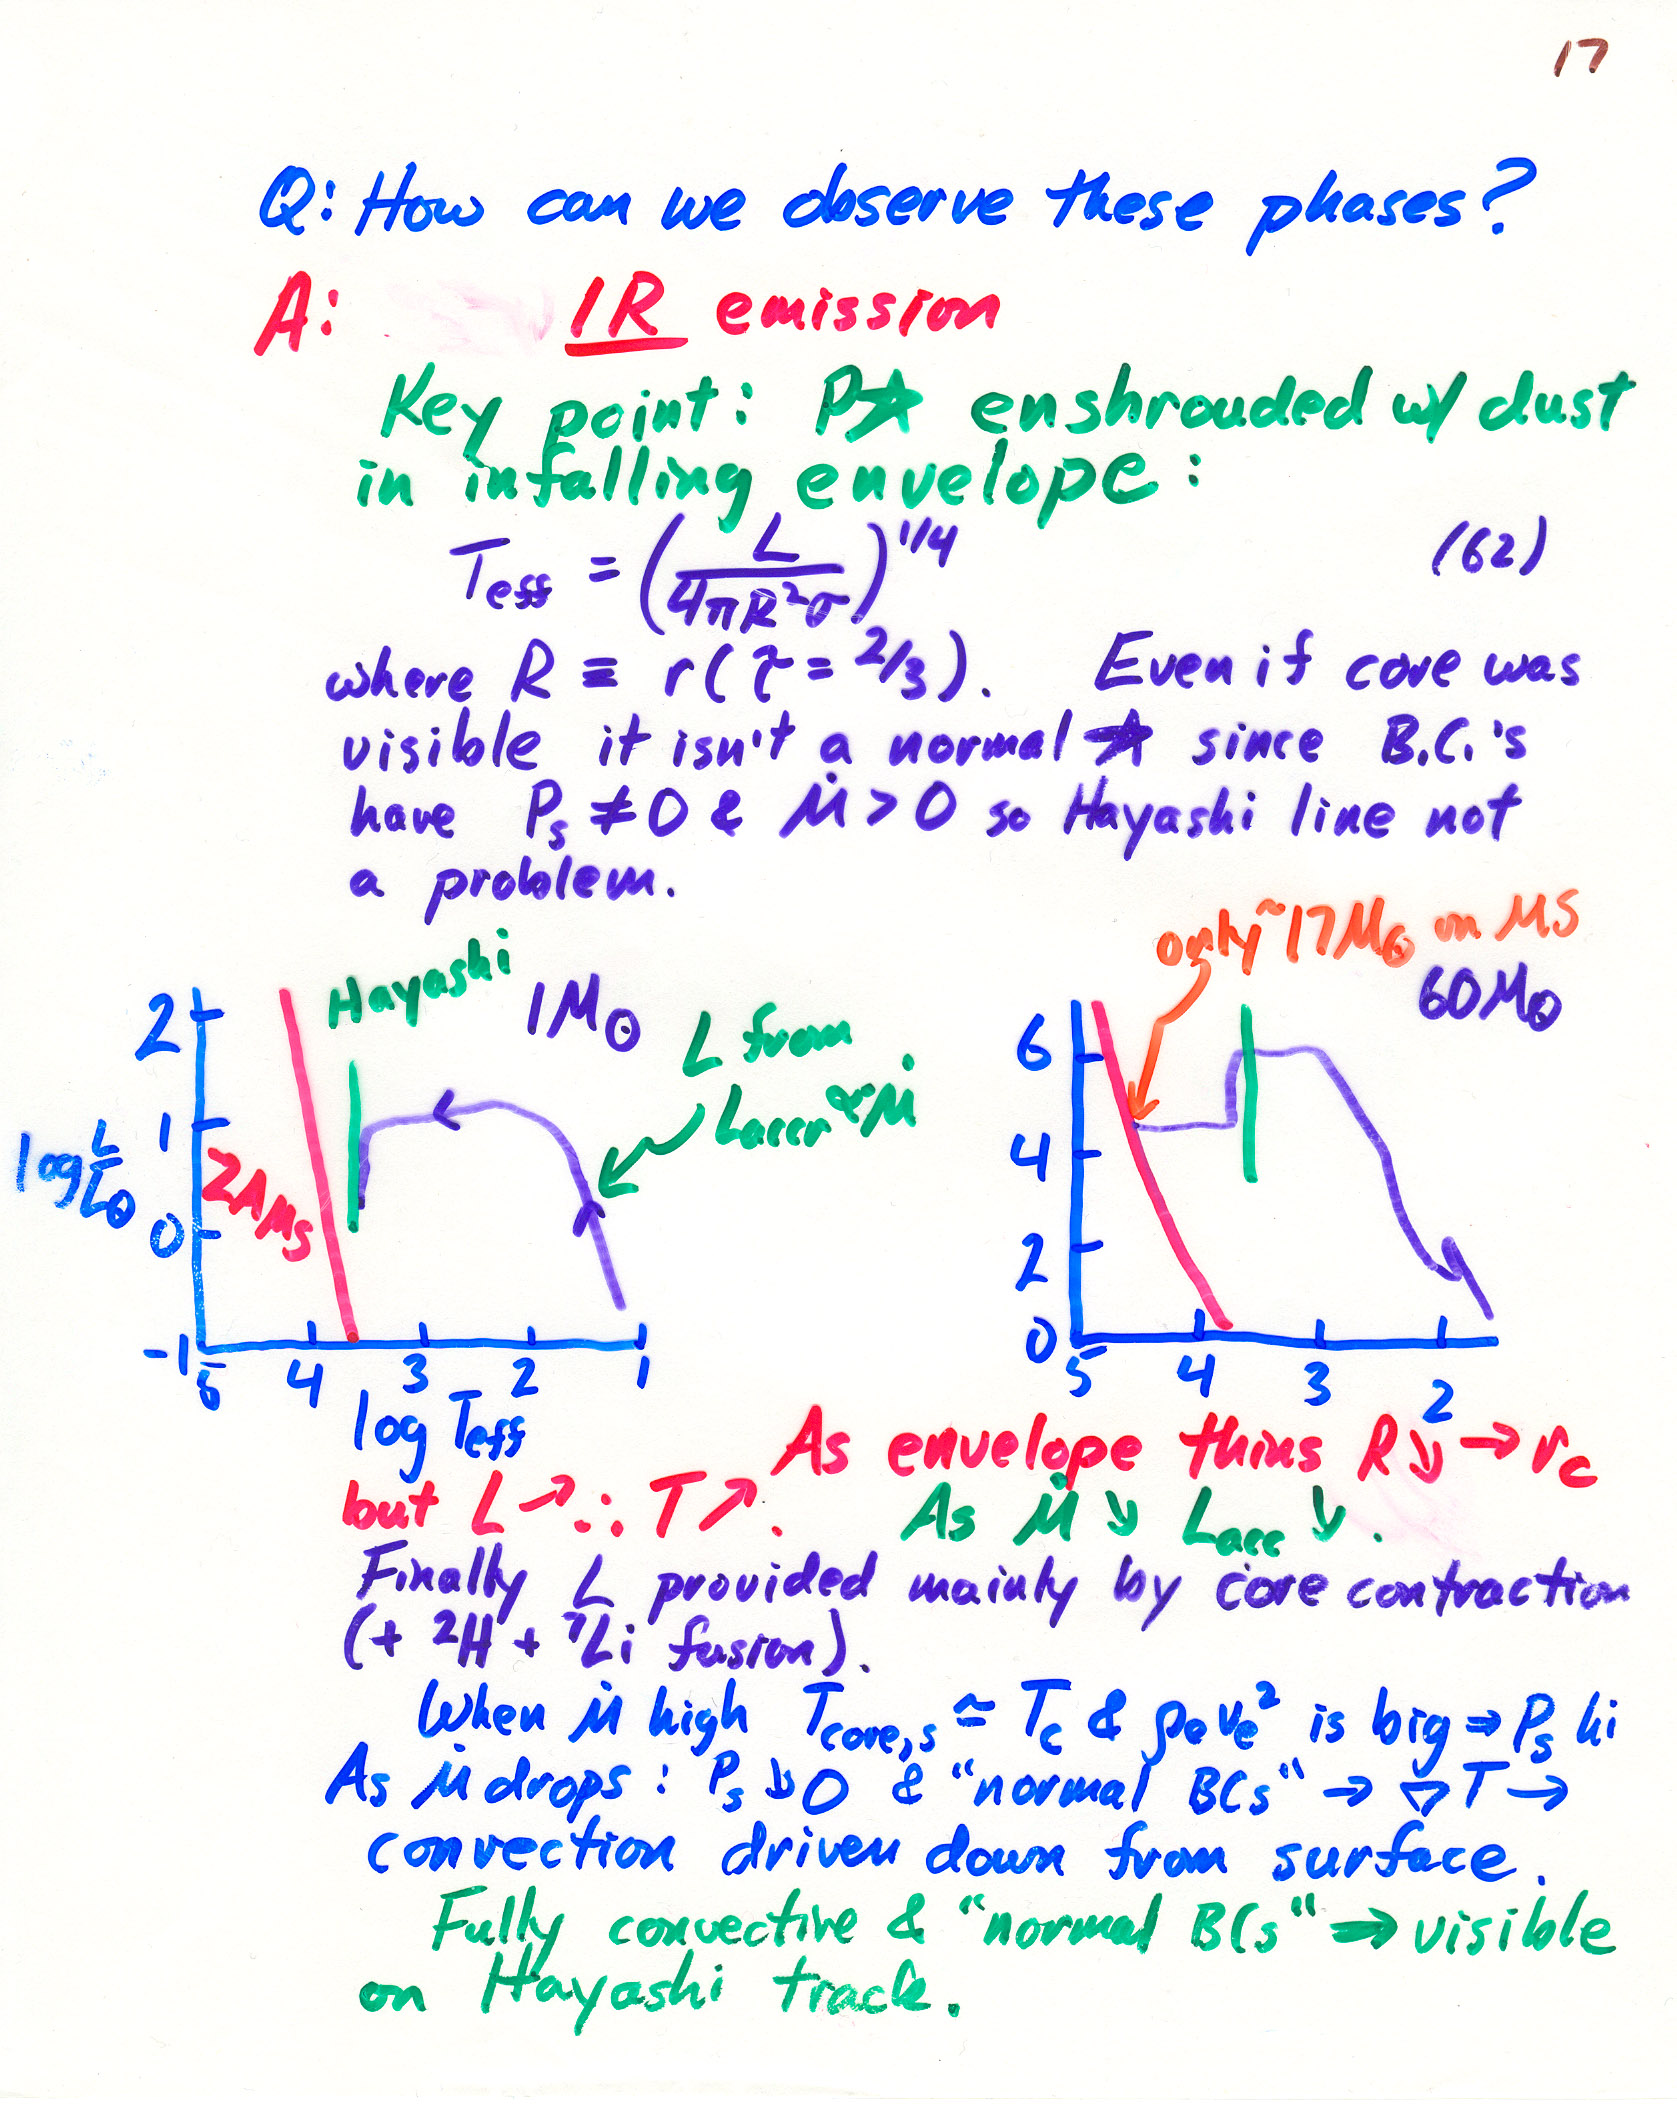 17
Q: How can we observe these phases?
A: IR emission
Key point: P☆ enshrouded w/ dust
in infalling envelope:
T_eff = (L / 4πR²σ)^1/4 (62)
where R ≡ r(τ = 2/3). Even if core was
visible it isn't a normal ☆ since B.C.'s
have P_s ≠ 0 & Ṁ > 0 so Hayashi line not
a problem.
only ~17M⊙ on MS
Hayashi
1M⊙
60M⊙
L from
Laccr ∝ Ṁ
2
1
0
-1
log L/L⊙
ZAMS
5 4 3 2 1
log T_eff
6
4
2
0
5 4 3 2
As envelope thins R↘ → r_c
but L ↗ ∴ T ↗. As Ṁ ↘ L_acc ↘.
Finally L provided mainly by core contraction
(+ ²H + ⁷Li fusion).
When Ṁ high T_core,s ≃ T_c & ρ_e v_e² is big ⇒ P_s hi
As Ṁ drops: P_s ↘ 0 & "normal BCs" → ∇T →
convection driven down from surface.
Fully convective & "normal BCs" ⇒ visible
on Hayashi track.